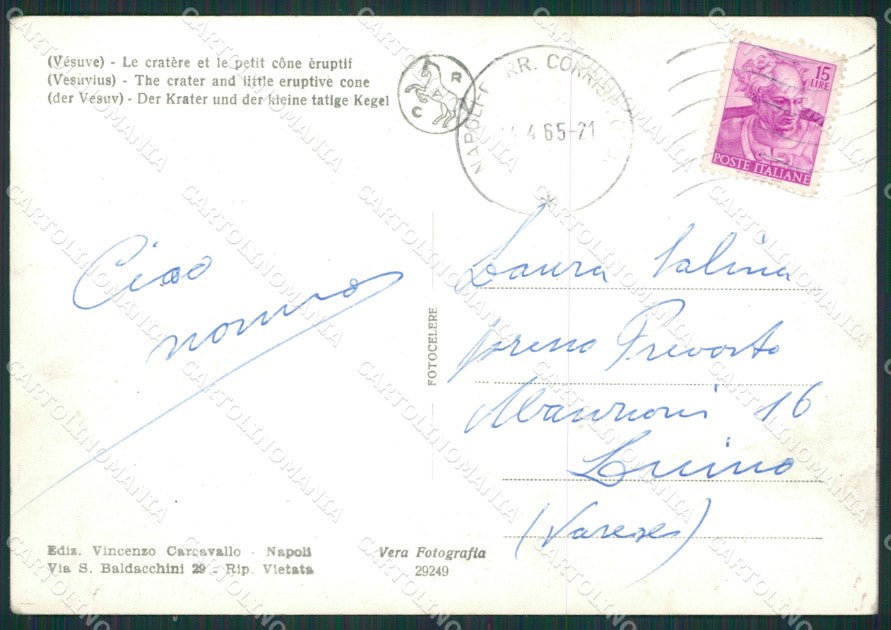 (Vésuve) - Le cratère et le petit cône èruptif
(Vesuvius) - The crater and little eruptive cone
(der Vesuv) - Der Krater und der kleine tatige Kegel
C R
NAPOLI CORRISP.
4 65-21
15
LIRE
POSTE ITALIANE
Ciao
nonnina
Laura Salina
presso Prevosto
Manzoni 16
Luino
(Varese)
FOTOCELERE
Ediz. Vincenzo Carcavallo - Napoli
Via S. Baldacchini 29 - Rip. Vietata
Vera Fotografia
29249
CARTOLINOMANIA